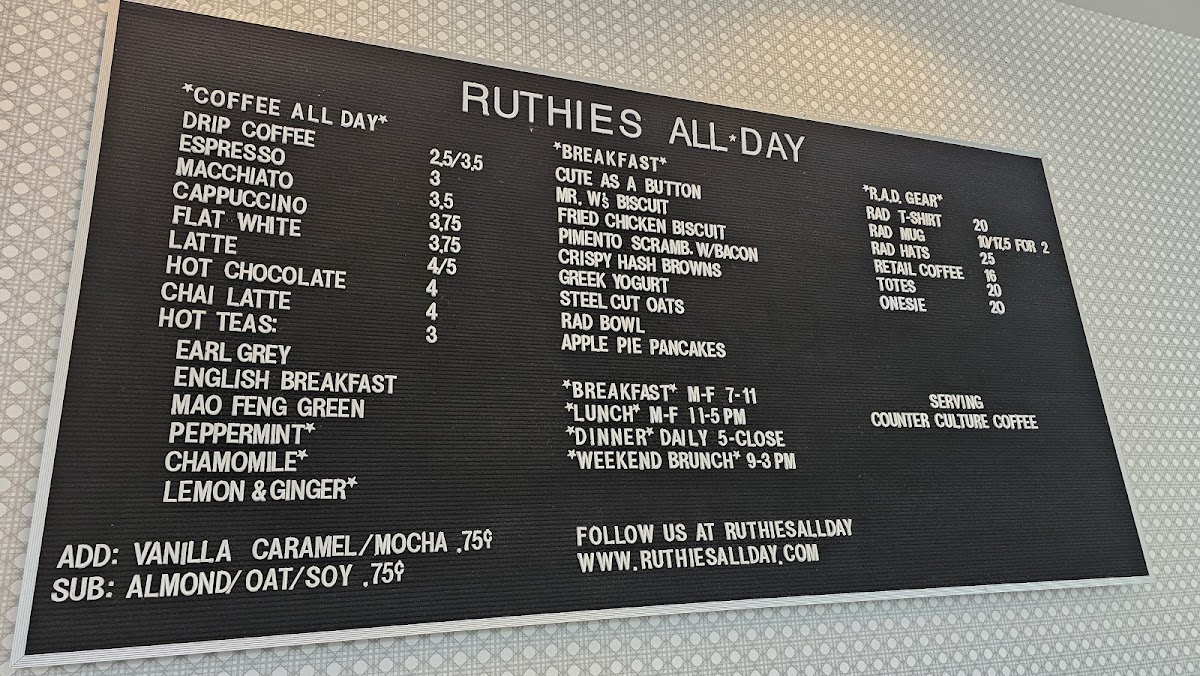 RUTHIES ALL*DAY
*COFFEE ALL DAY*
DRIP COFFEE 2.5/3.5
ESPRESSO 3
MACCHIATO 3.5
CAPPUCCINO 3.75
FLAT WHITE 3.75
LATTE 4/5
HOT CHOCOLATE 4
CHAI LATTE 4
HOT TEAS: 3
EARL GREY
ENGLISH BREAKFAST
MAO FENG GREEN
PEPPERMINT*
CHAMOMILE*
LEMON & GINGER*
ADD: VANILLA CARAMEL/MOCHA .75¢
SUB: ALMOND/OAT/SOY .75¢
*BREAKFAST*
CUTE AS A BUTTON
MR. W's BISCUIT
FRIED CHICKEN BISCUIT
PIMENTO SCRAMB. W/BACON
CRISPY HASH BROWNS
GREEK YOGURT
STEEL CUT OATS
RAD BOWL
APPLE PIE PANCAKES
*BREAKFAST* M-F 7-11
*LUNCH* M-F 11-5 PM
*DINNER* DAILY 5-CLOSE
*WEEKEND BRUNCH* 9-3 PM
FOLLOW US AT RUTHIESALLDAY
WWW.RUTHIESALLDAY.COM
*R.A.D. GEAR*
RAD T-SHIRT 20
RAD MUG 10/17.5 FOR 2
RAD HATS 25
RETAIL COFFEE 16
TOTES 20
ONESIE 20
SERVING
COUNTER CULTURE COFFEE